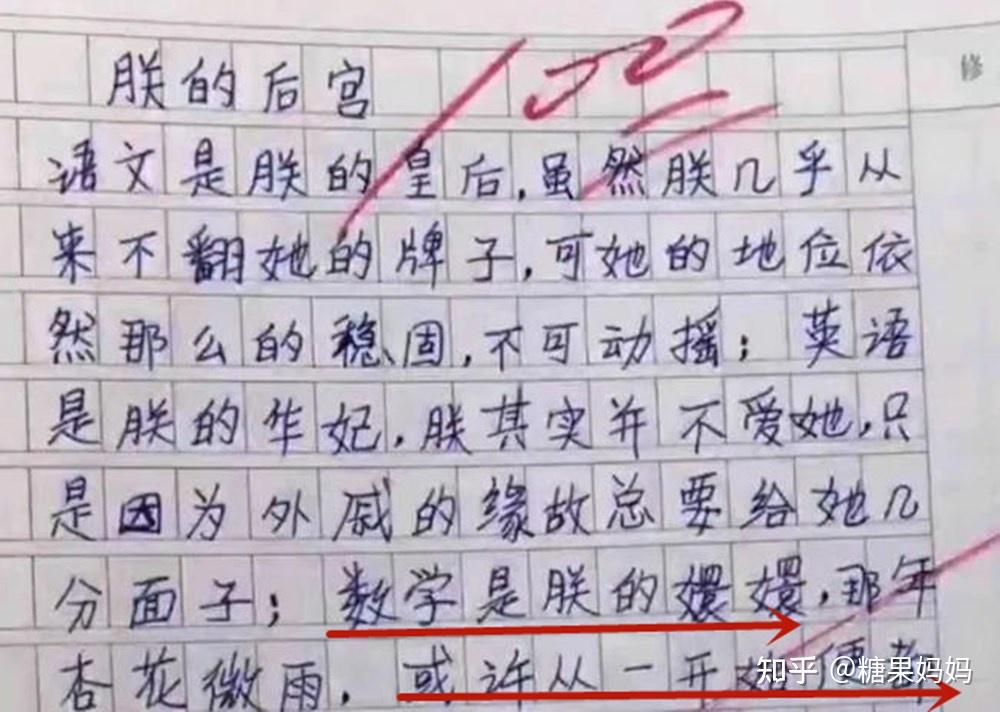 修
朕的后宫
语文是朕的皇后,虽然朕几乎从
来不翻她的牌子,可她的地位依
然那么的稳固,不可动摇;英语
是朕的华妃,朕其实并不爱她,只
是因为外戚的缘故总要给她几
分面子;数学是朕的嬛嬛,那年
杏花微雨,或许从一开始便都
知乎 @糖果妈妈